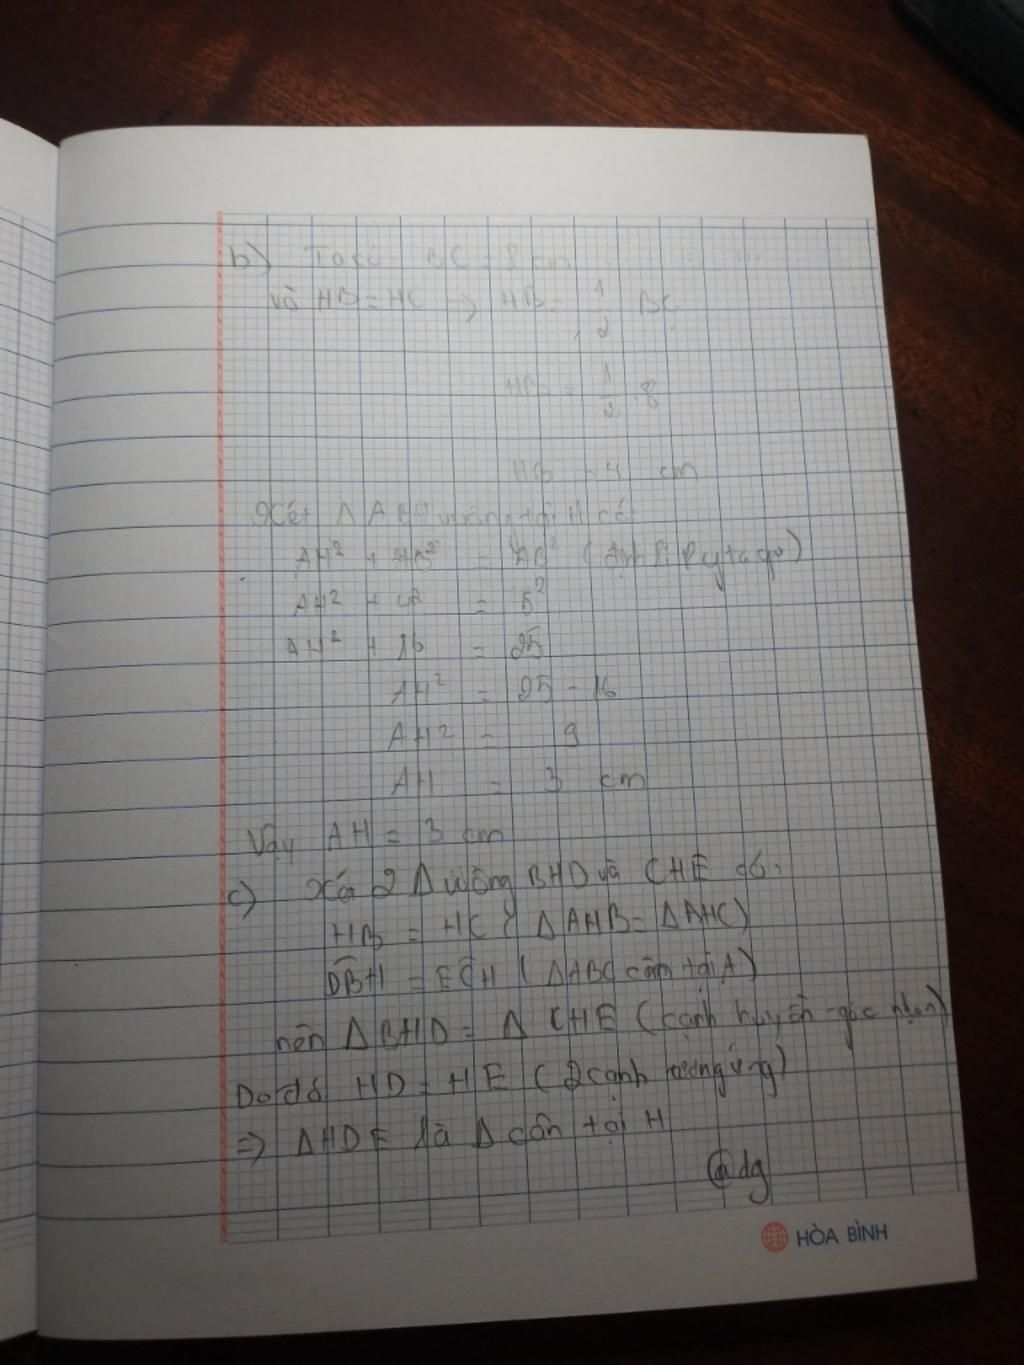 b) Ta có BC = 8 cm
và HB = HC => HB = 1/2 BC
HB = 1/2 . 8
HB = 4 cm
Xét Δ AHB vuông tại H có:
AH² + HB² = AB² (định lí Pytago)
AH² + 4² = 5²
AH² + 16 = 25
AH² = 25 - 16
AH² = 9
AH = 3 cm
Vậy AH = 3 cm
c) Xét 2 Δ vuông BHD và CHE có:
HB = HC (ΔAHB = ΔAHC)
DB̂H = EĈH (ΔABC cân tại A)
nên ΔBHD = Δ CHE (cạnh huyền - góc nhọn)
Do đó HD = HE (2 cạnh tương ứng)
=> ΔHDE là Δ cân tại H
@dg
HÒA BÌNH